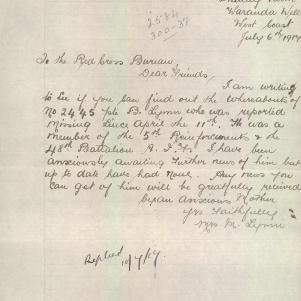 2584
300-37
Waranda Well
West Coast
July 6th 1917
To the Red Cross Bureau,
Dear Friends,
I am writing
to see if you can find out the whereabouts of
No 2445 Pte B. Lynn who was reported
Missing since April the 11th. He was a
member of the 5th Reinforcements & the
48th Battalion A. I. Fs I have been
anxiously awaiting further news of him but
up to date have had none. Any news you
can get of him will be gratfully received
by an anxious Mother
Yrs Faithfully
Mrs M. Lynn
Replied 10/7/17